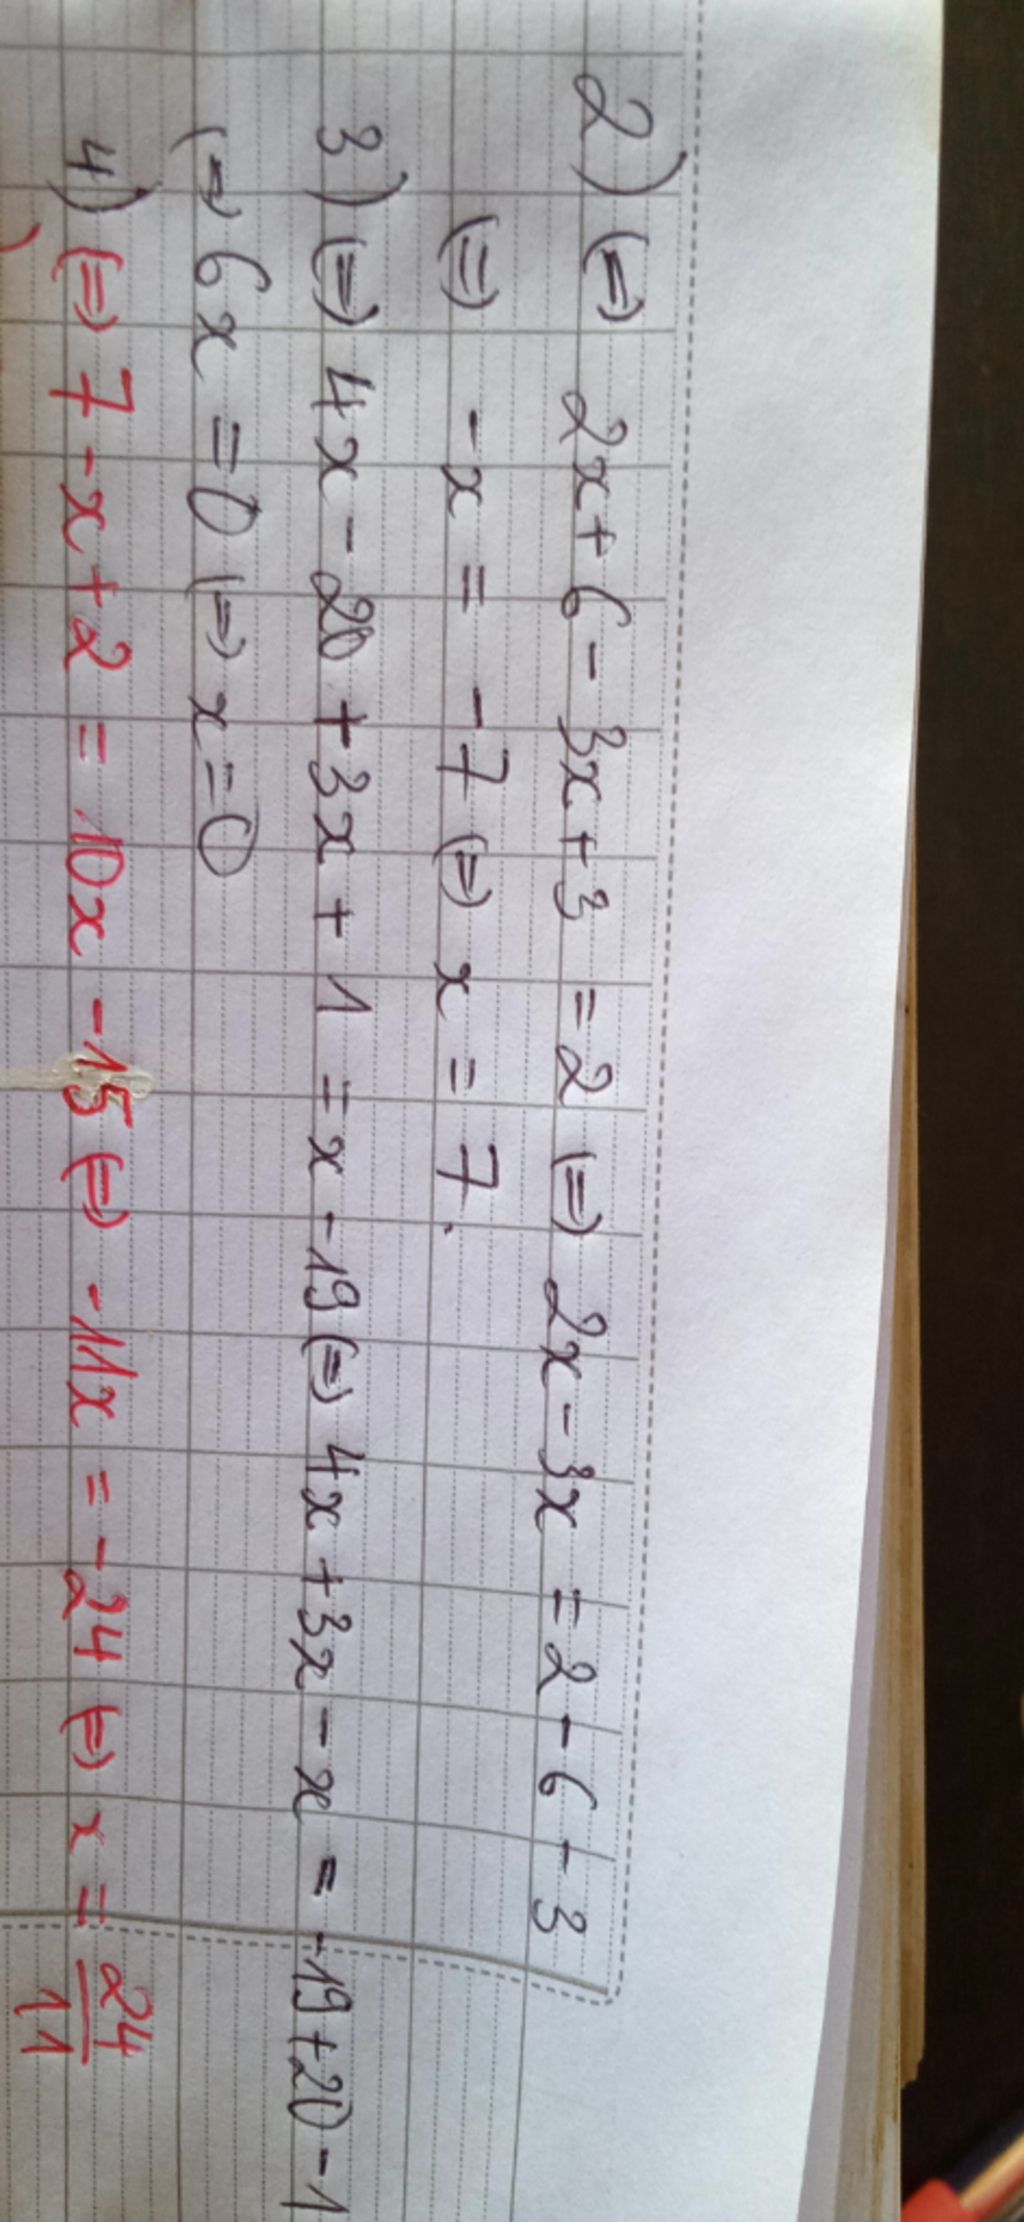 2) (=) 2x + 6 - 3x + 3 = 2 (=) 2x - 3x = 2 - 6 - 3
(=) - x = - 7 (=) x = 7.
3) (=) 4x - 20 + 3x + 1 = x - 19 (=) 4x + 3x - x = -19 + 20 - 1
(=) 6x = 0 (=) x = 0
4) (=) 7 - x + 2 = 10x - 15 (=) - 11x = - 24 (=) x = 24/11